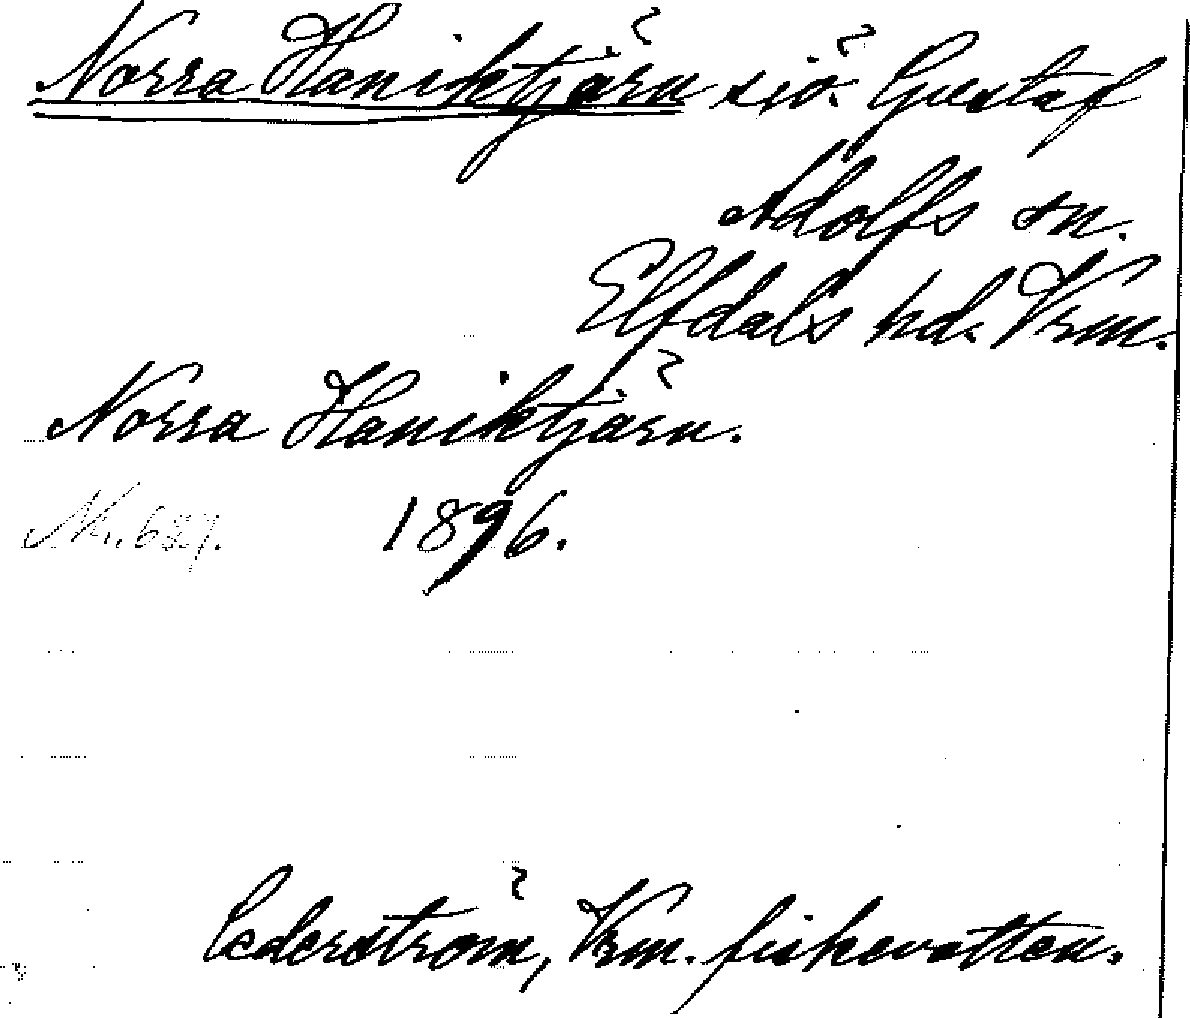 Norra Haniktjärn sjö. Gustaf
Adolfs sn.
Elfdals hd. Vrm.
Norra Haniktjärn.
Nr. 687. 1896.
Cederström, Vrm. fiskevatten.